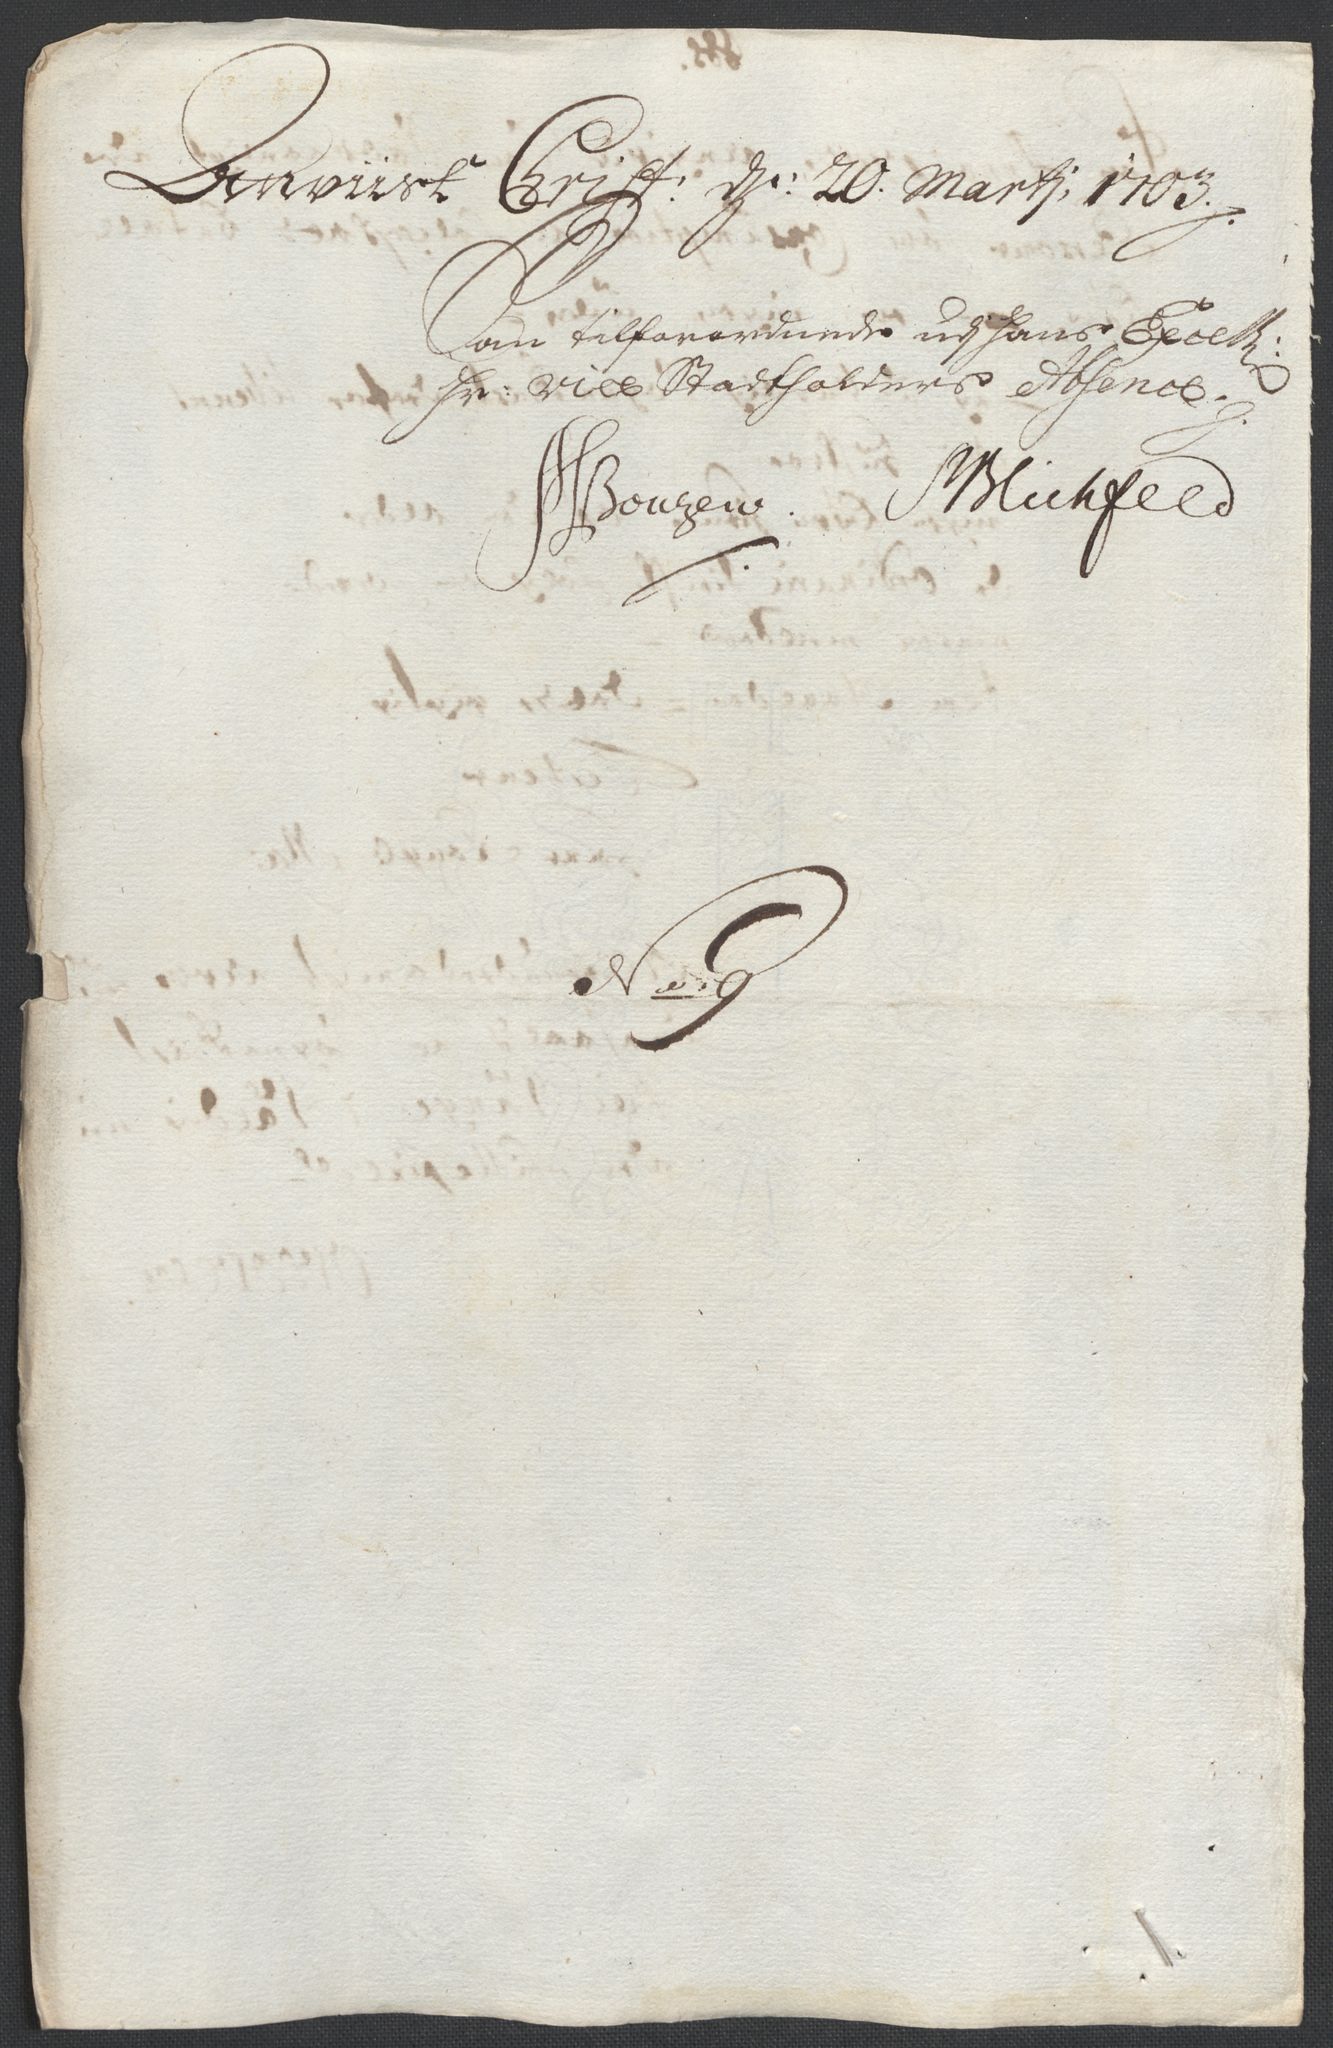 Anviist Christ: dn: 20. Martij 1703.
Som tilforordnede udj hans Excell:
Hr: Vice Stadtholders Absence.
Bonzew. MBlichfeld
No 9